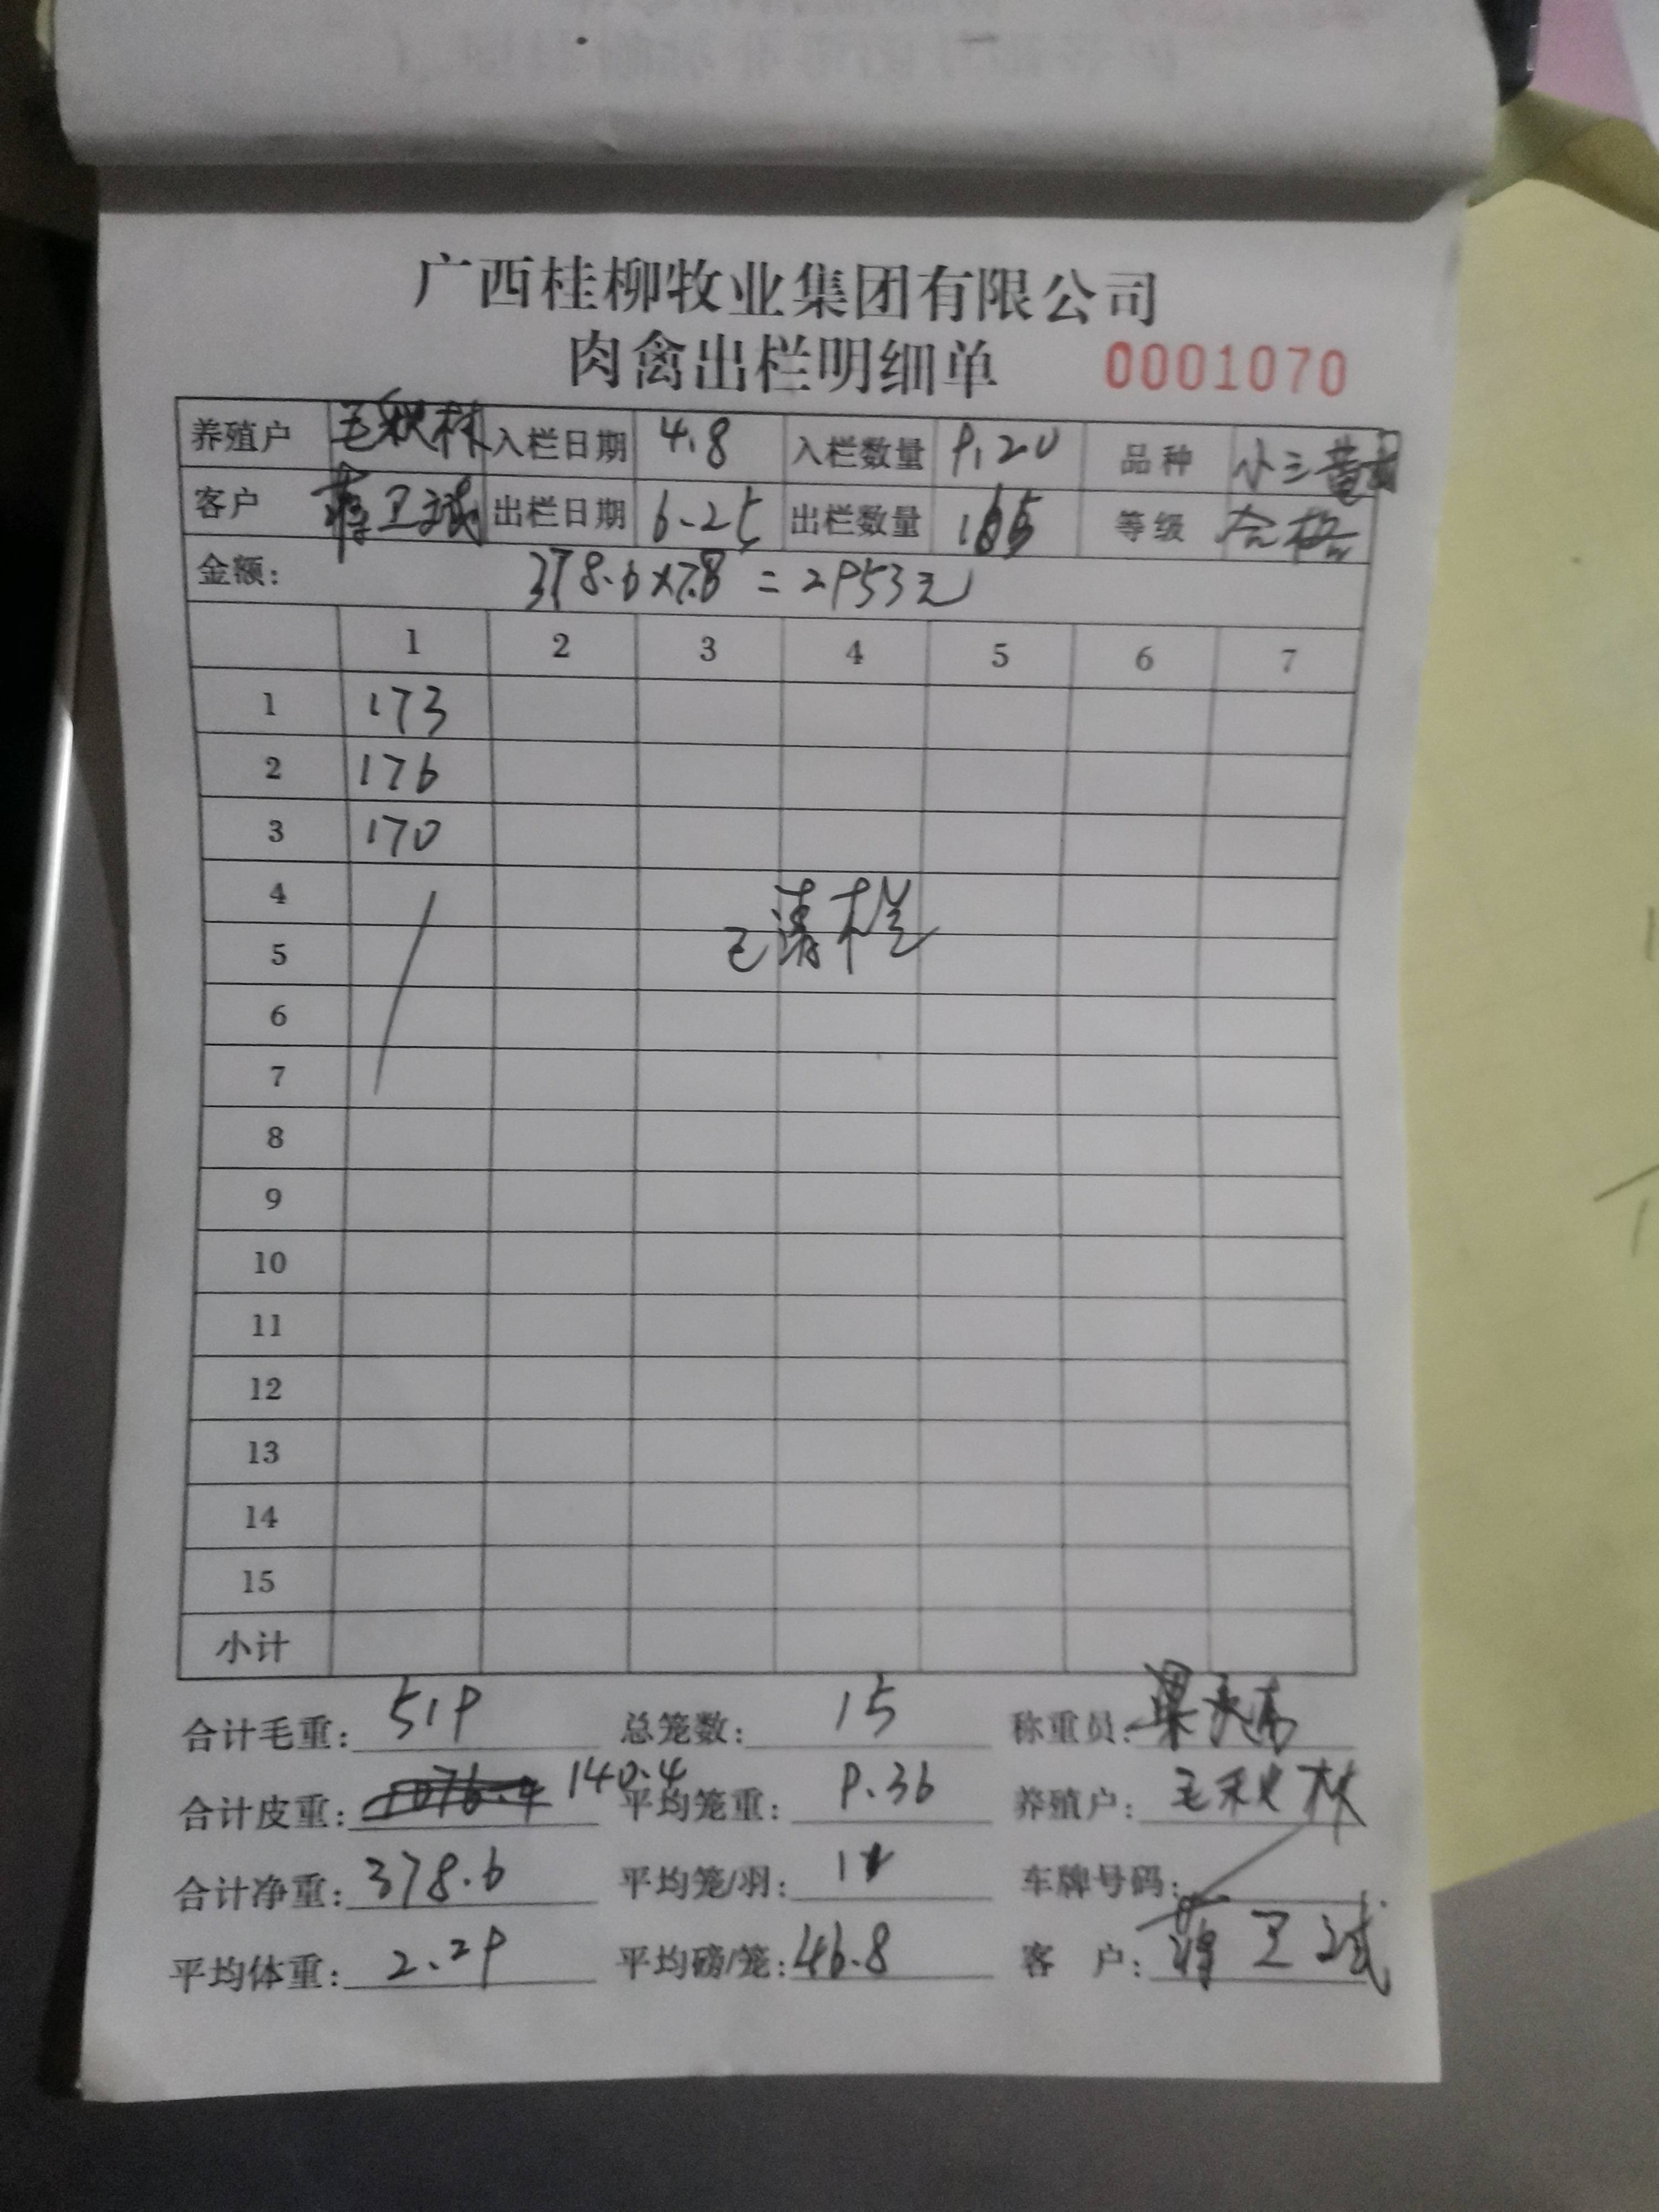 广西桂柳牧业集团有限公司
肉禽出栏明细单 0001070
养殖户 毛秋林 入栏日期 4.8 入栏数量 9120 品种 小三黄
客户 蒋卫斌 出栏日期 6-25 出栏数量 165 等级 合格
金额: 378.6×7.8=2953元
1 2 3 4 5 6 7
1 173
2 176
3 170
4
已清栏
5
6
7
8
9
10
11
12
13
14
15
小计
合计毛重: 519 总笼数: 15 称重员:
合计皮重: 140.4 平均笼重: 9.36 养殖户: 毛秋林
合计净重: 378.6 平均笼/羽: 11 车牌号码:
平均体重: 2.29 平均磅/笼: 46.8 客 户: 蒋卫斌